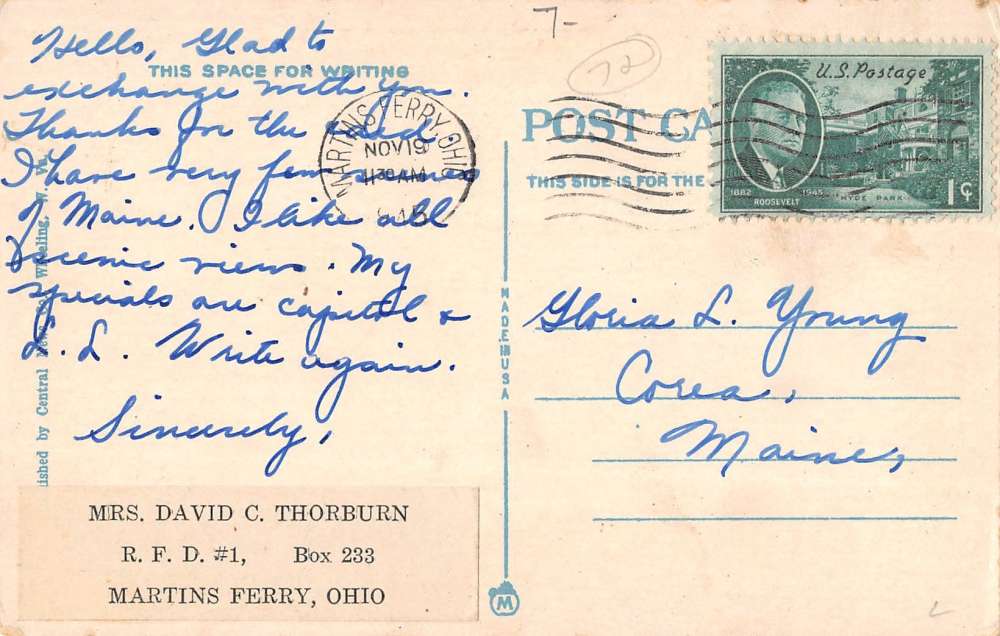 7-
72
Hello, Glad to
THIS SPACE FOR WRITING
exchange with you.
Thanks for the card
I have very few
of Maine. I like all
scenic views. My
specials are capitol &
L. L. Write again.
Sincerely,
MRS. DAVID C. THORBURN
R. F. D. #1, Box 233
MARTINS FERRY, OHIO
ished by Central News Co. Wheeling, W. Va.
MARTINS FERRY, OHIO
NOV 19
11 30 AM
POST CA
THIS SIDE IS FOR THE
U.S. Postage
1882 1945
ROOSEVELT
HYDE PARK
1¢
MADE IN USA
Gloria L. Young
Corea,
Maine,
M
L